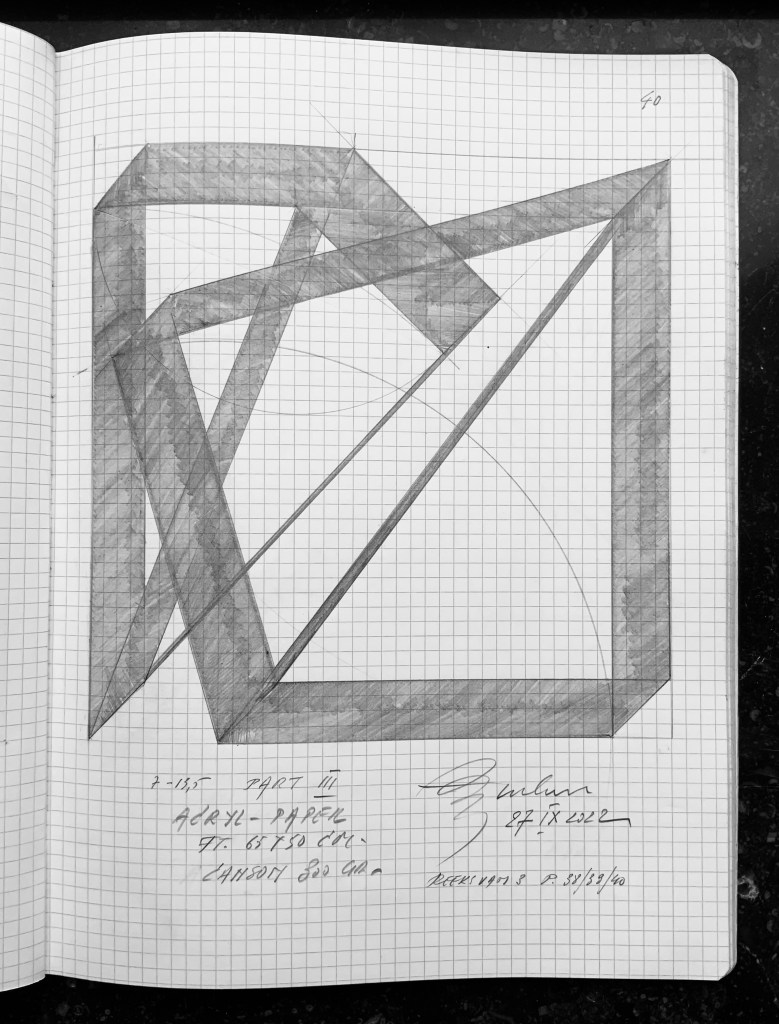 40
7-13,5 PART III
ACRYL-PAPER
FT. 65 X 50 CM.
CANSON 300 GR.
27 IX 2022
REEKS VAN 3 P. 38/39/40